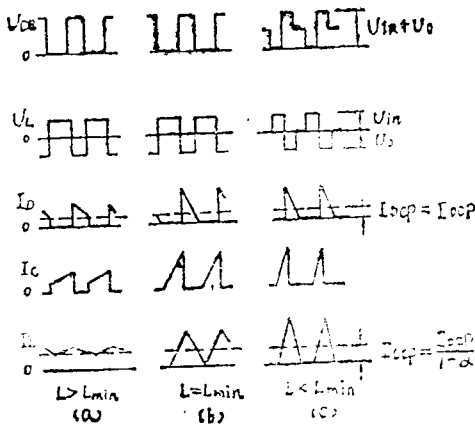 UCE
0
Uin+Uo
UL
0
Uin
Uo
ID
0
IDCP = IOCP
IC
0
IL
0
ICCP = IOCP/1-α
L>Lmin L=Lmin L<Lmin
(a) (b) (c)